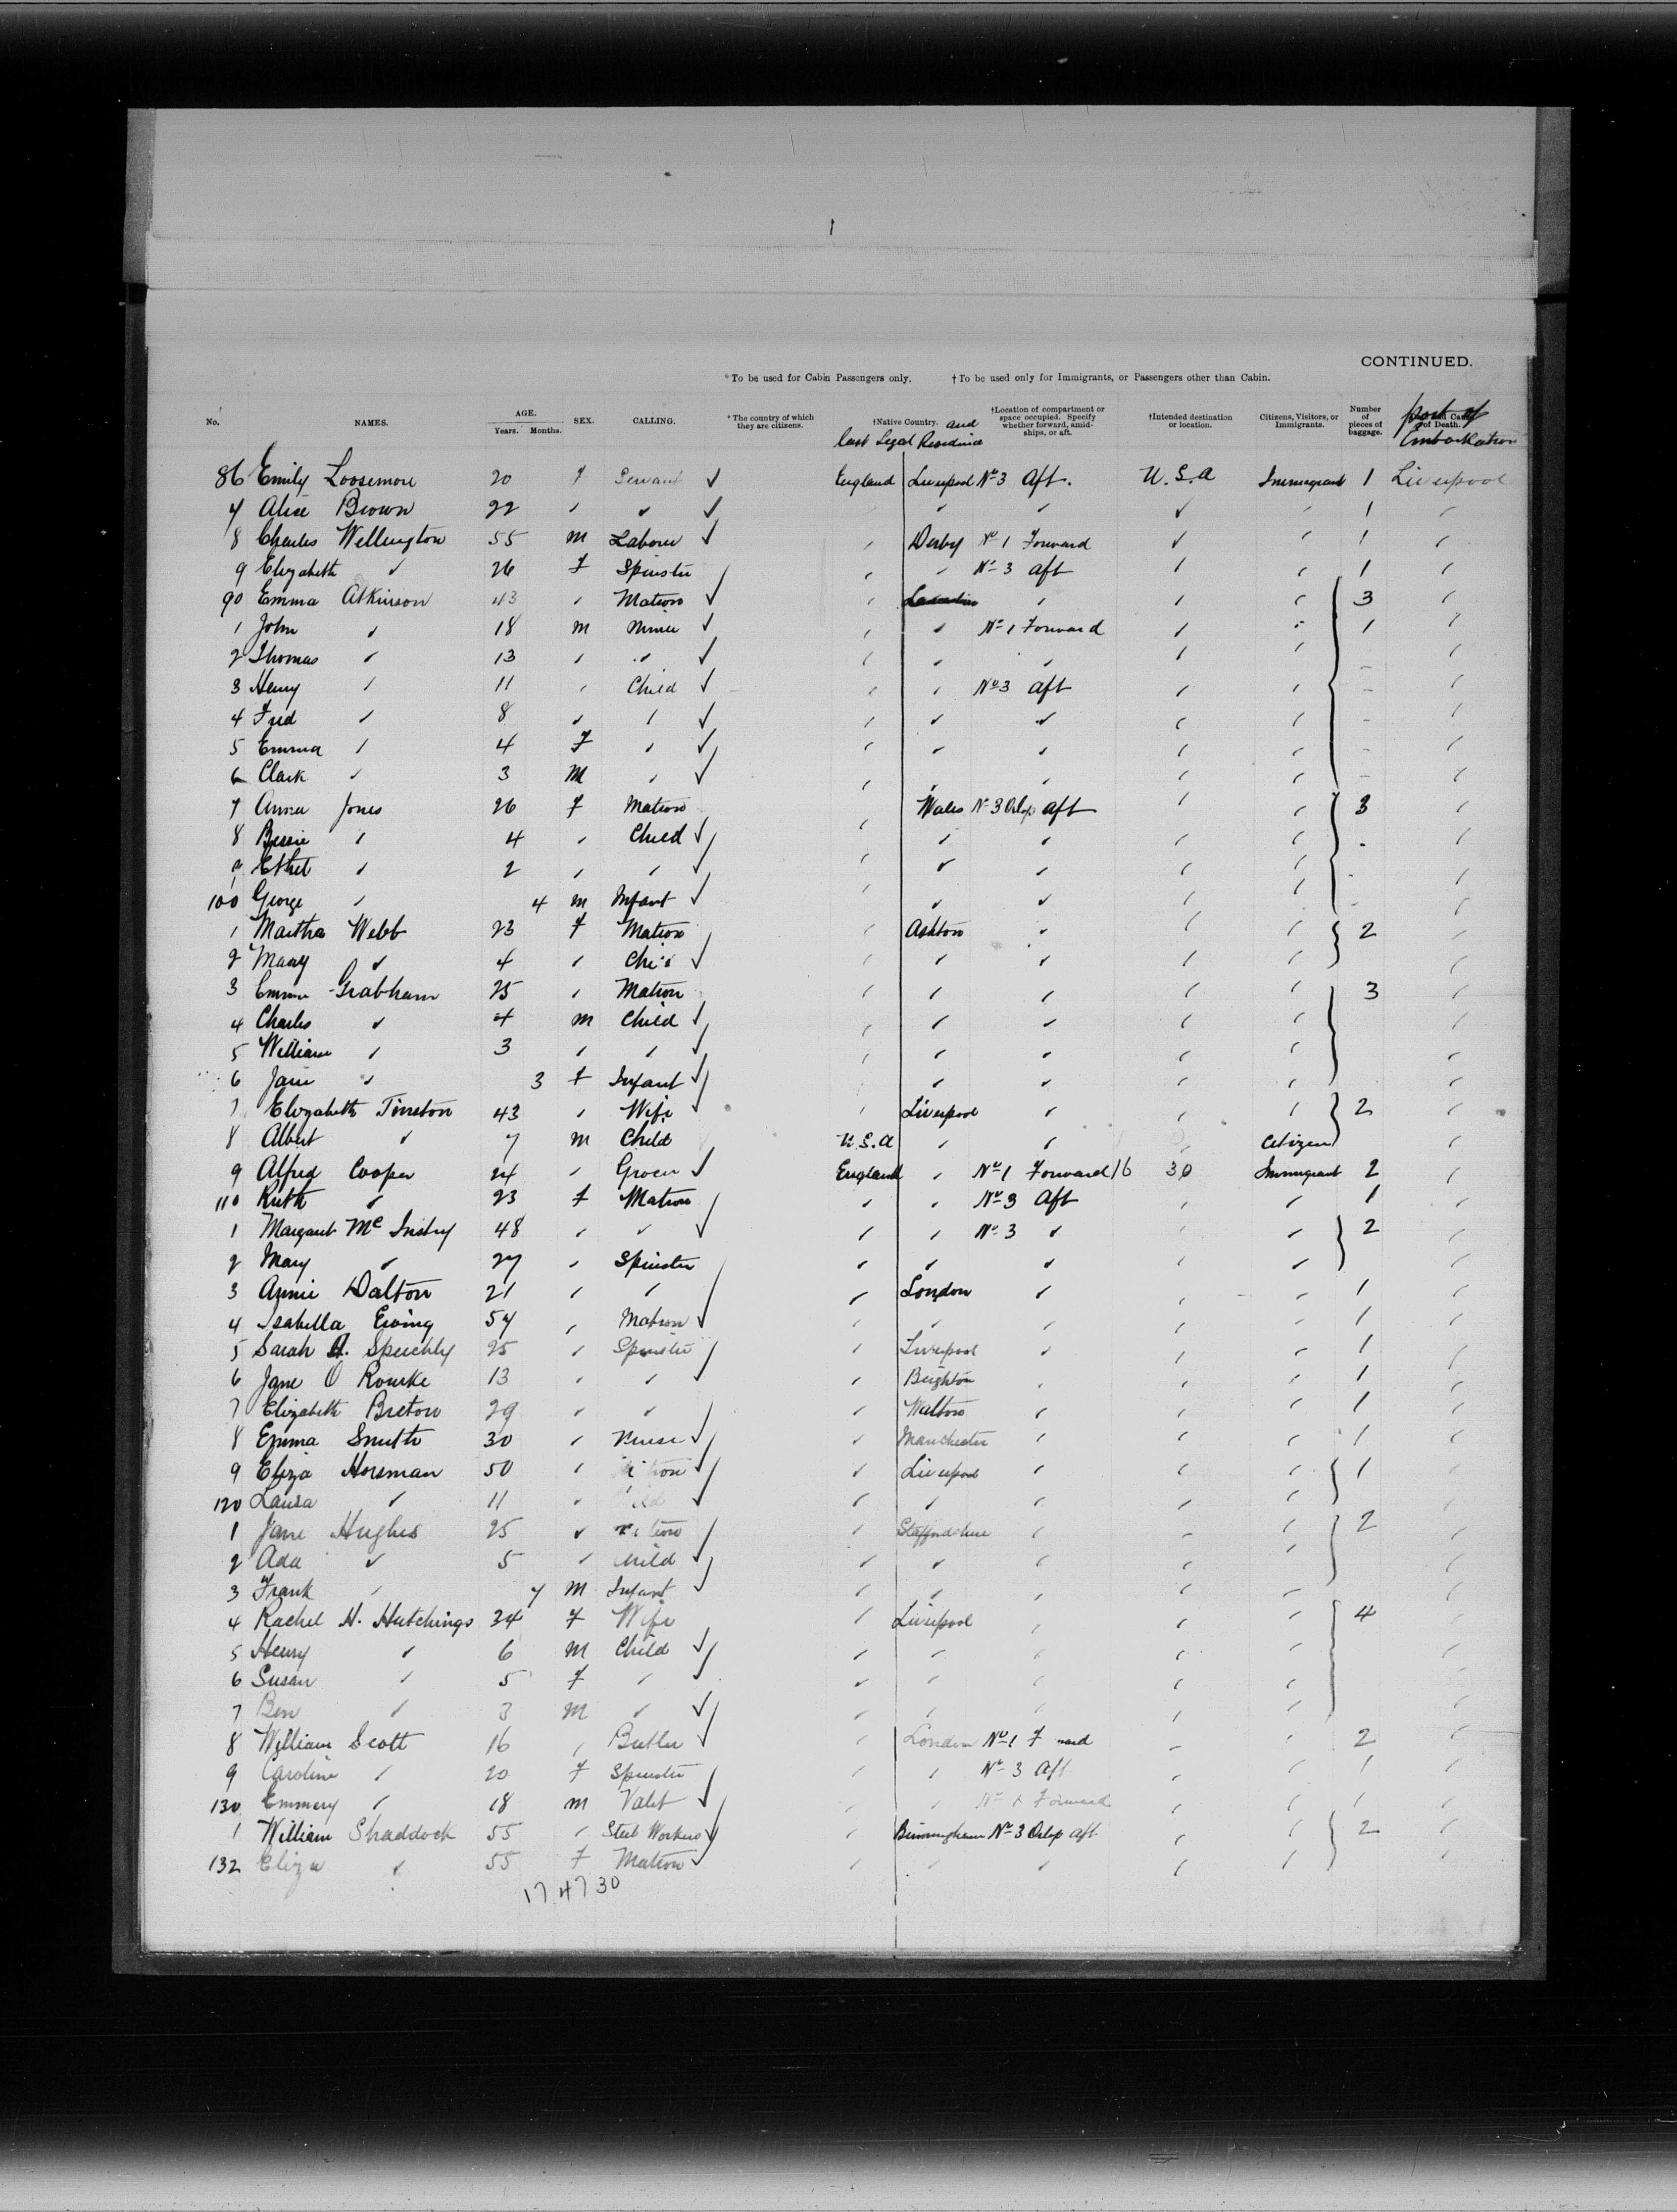 CONTINUED.
*To be used for Cabin Passengers only. †To be used only for Immigrants, or Passengers other than Cabin.
No. NAMES. AGE. Years. Months. SEX. CALLING. *The country of which they are citizens. †Native Country. and last Legal Residence †Location of compartment or space occupied. Specify whether forward, amidships, or aft. †Intended destination or location. Citizens, Visitors, or Immigrants. Number of pieces of baggage. port of Embarkation of Death.
86 Emily Loosemore 20 f Servant ✓ England Liverpool No 3 Aft. U.S.A Immigrant 1 Liverpool
7 Alice Brown 22 ✓ 1
8 Charles Wellington 55 m Laborer ✓ Derby No 1 Forward 1
9 Elizabeth 26 F Spinster No 3 aft 1
90 Emma Atkinson 43 Matron ✓ 3
1 John 18 m Miner ✓ No 1 Forward 1
2 Thomas 13 ✓
3 Henry 11 Child ✓ No 3 aft
4 Fred 8 ✓
5 Emma 4 F ✓
6 Clark 3 M ✓
7 Anna Jones 26 f Matron Wales No 3 Orlop aft 3
8 Bessie 4 Child ✓
9 Ethel 2
100 George 4 m Infant ✓
1 Martha Webb 23 f Matron Ashton 2
2 Mary 4 ✓
3 Emma Grabham 25 Matron 3
4 Charles 4 m Child ✓
5 William 3
6 Jane 3 f Infant ✓
7 Elizabeth Tinston 43 Wife Liverpool 2
8 Albert 7 m Child U.S.A Citizen
9 Alfred Cooper 24 Grocer ✓ England No 1 Forward 16 30 Immigrant 2
110 Ruth 23 f Matron No 3 Aft 1
1 Margaret 48 No 3 2
2 Mary 27 Spinster
3 Annie Dalton 21 London 1
4 Isabella Ewing 54 Matron 1
5 Sarah A. Speechly 25 Spinster Liverpool 1
6 Jane O Rourke 13 Brighton 1
7 Elizabeth Breton 29 Walton 1
8 Emma Smith 30 Nurse ✓ Manchester 1
9 Eliza Horsman 50 Liverpool 1
120 Laura 11
1 Jane Hughes 25 Staffordshire 2
2 Ada 5 Child ✓
3 Frank 7 m Infant
4 Rachel H. Hutchings 34 f Wife Liverpool 4
5 Henry 6 m Child ✓
6 Susan 5 f
7 Ben 3 m ✓
8 William Scott 16 Butler ✓ London No 1 2
9 Caroline 20 f Spinster No 3 Aft 1
130 Emmery 18 m Valet ✓ Forward 1
1 William Shaddock 55 Steel Worker ✓ Birmingham No 3 Orlop aft 2
132 Eliza 55 f Matron
17 47 30